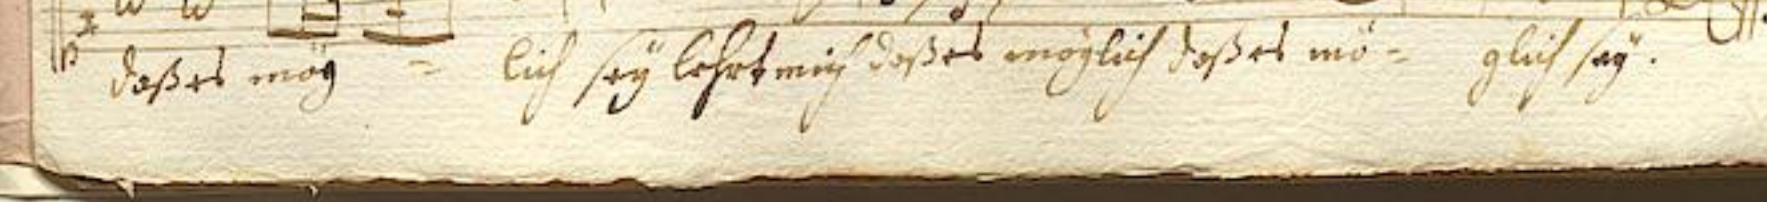 daß es mög = lich seÿ lehrt mich daß es möglich daß es mö = glich seÿ.